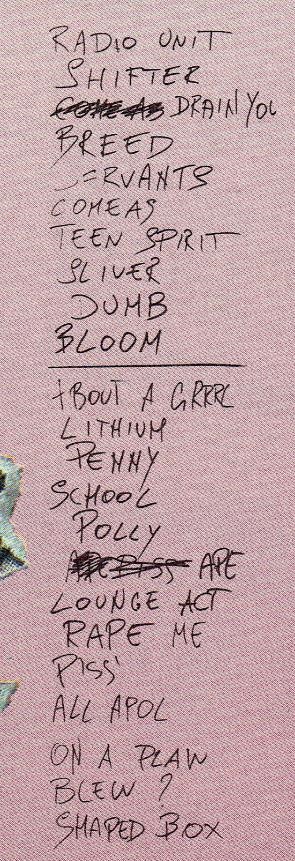 RADIO UNIT
SHIFTER
COME AS DRAIN YOU
BREED
SERVANTS
COME AS
TEEN SPIRIT
SLIVER
DUMB
BLOOM
ABOUT A GRRRL
LITHIUM
PENNY
SCHOOL
POLLY
APE PISS APE
LOUNGE ACT
RAPE ME
PISS
ALL APOL
ON A PLAW
BLEW ?
SHAPED BOX